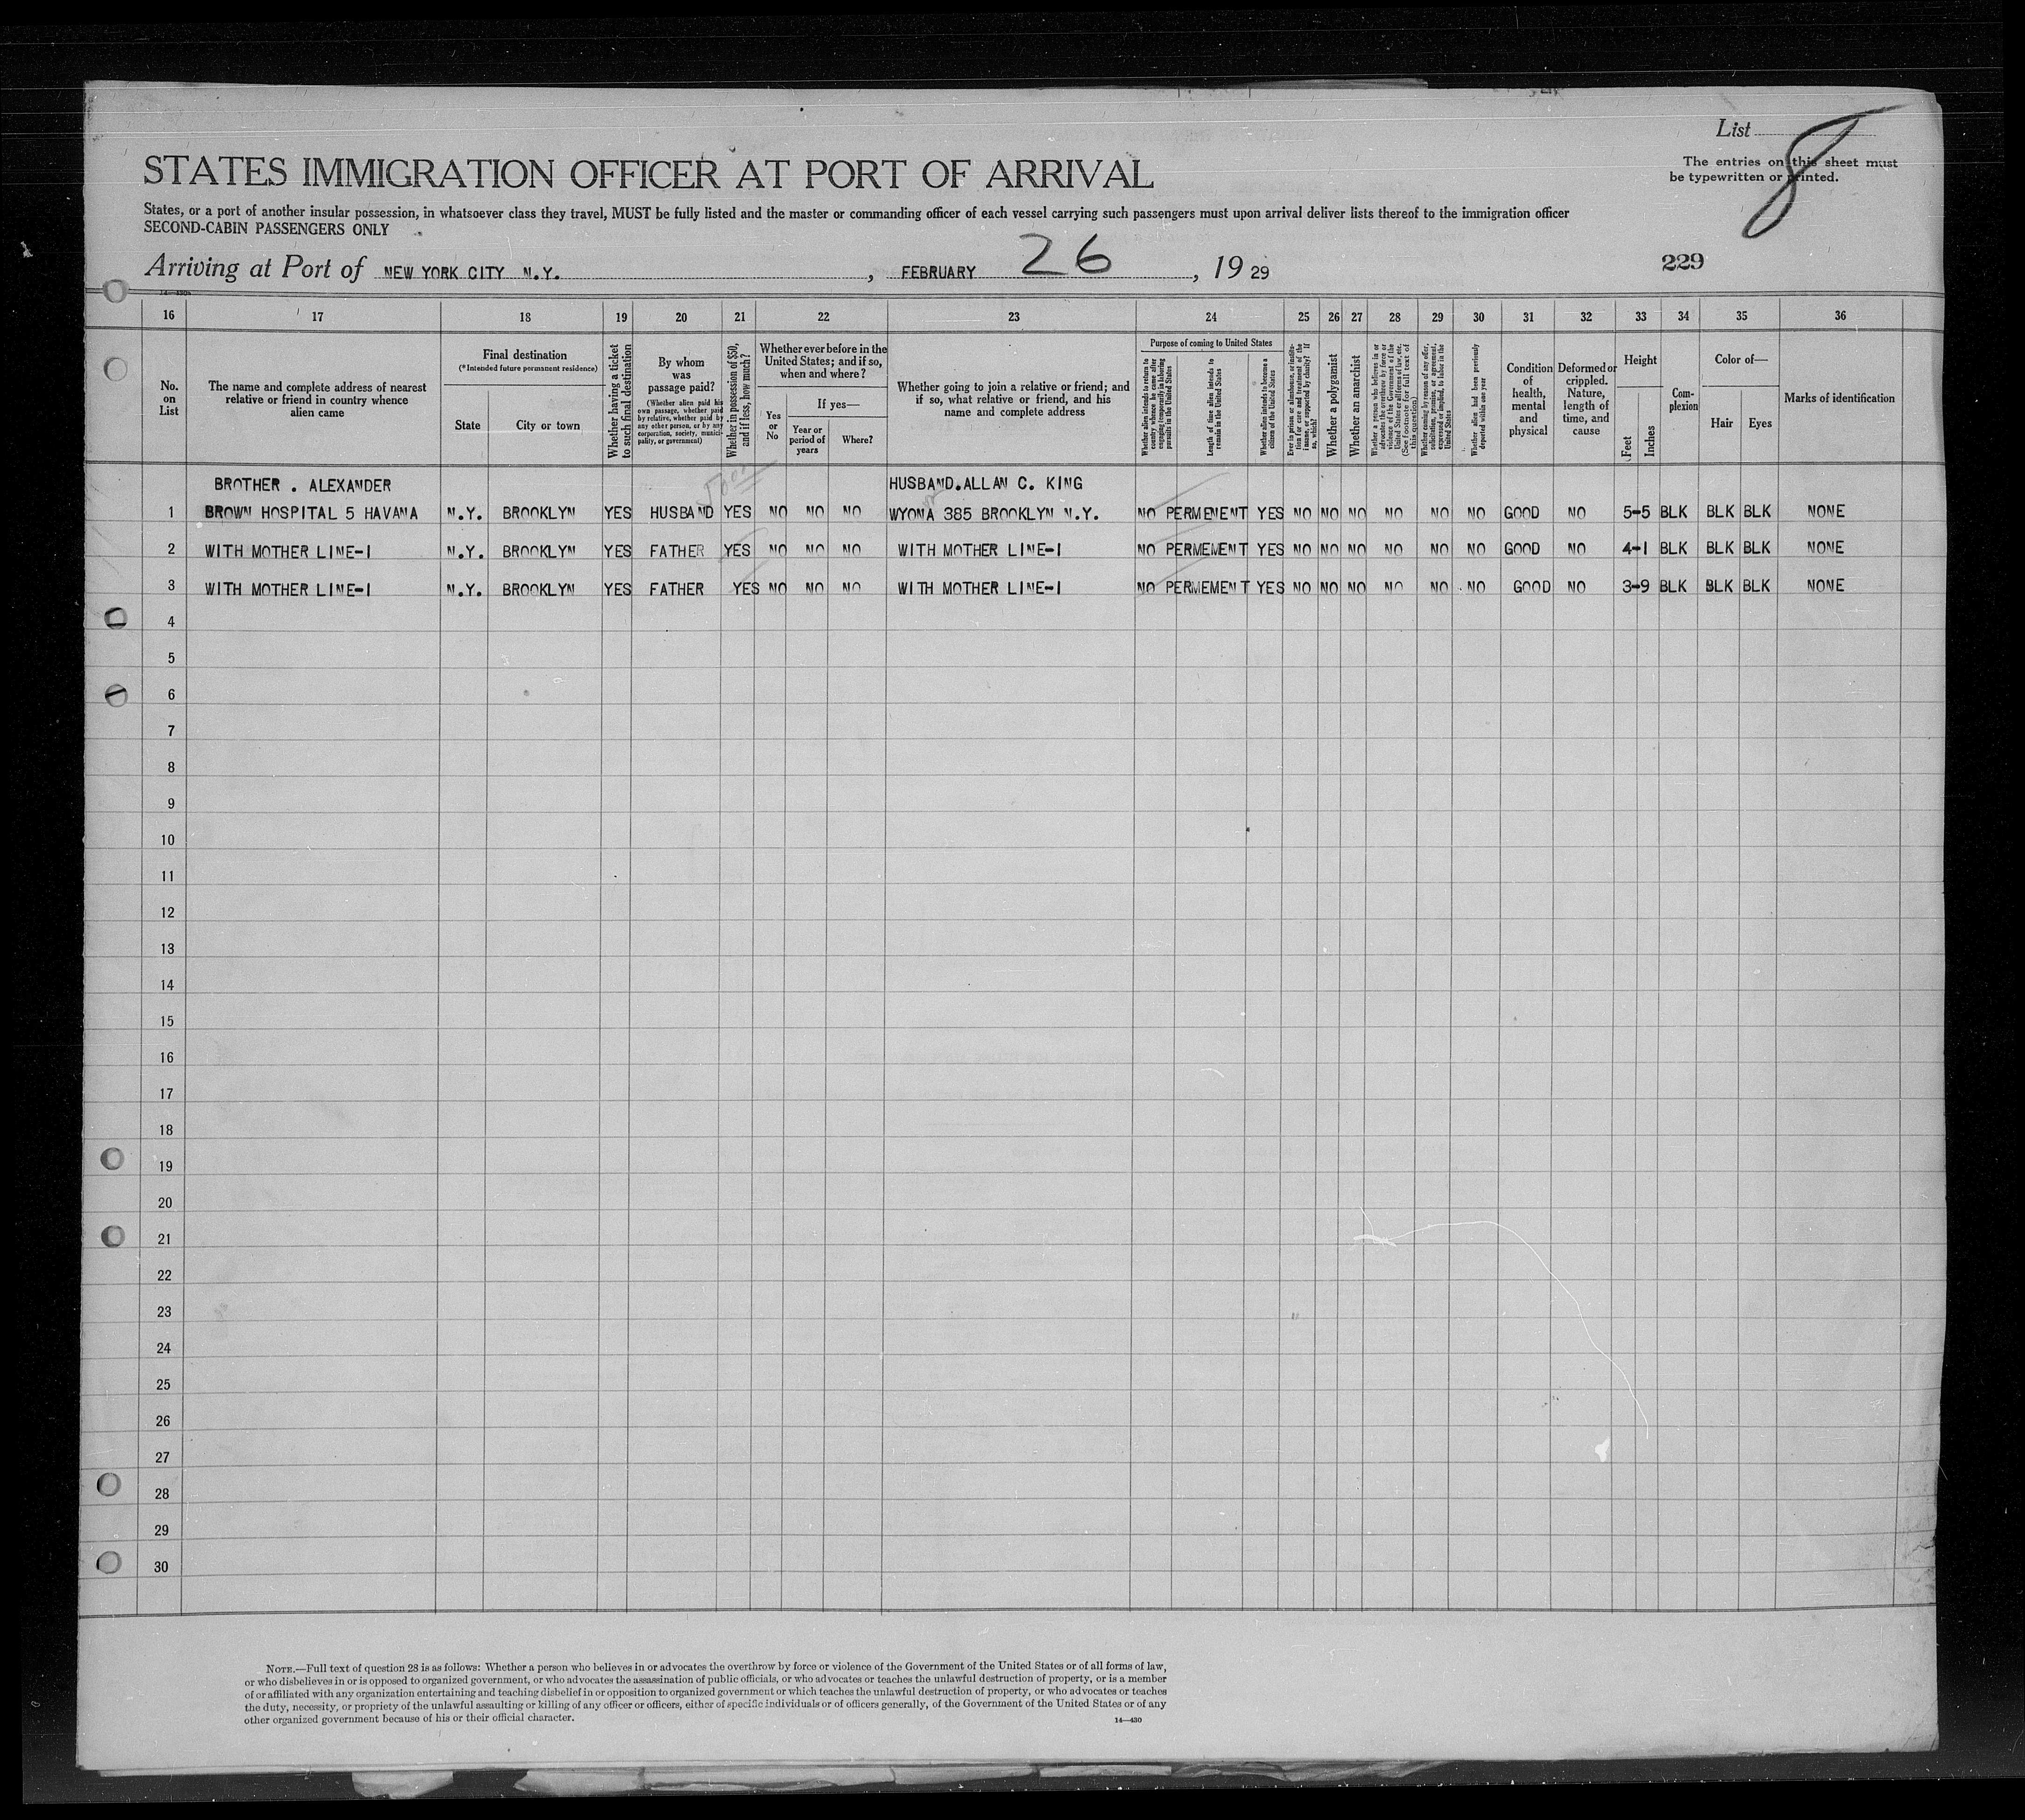 List 8
The entries on this sheet must
be typewritten or printed.
STATES IMMIGRATION OFFICER AT PORT OF ARRIVAL
States, or a port of another insular possession, in whatsoever class they travel, MUST be fully listed and the master or commanding officer of each vessel carrying such passengers must upon arrival deliver lists thereof to the immigration officer
SECOND-CABIN PASSENGERS ONLY
Arriving at Port of NEW YORK CITY N.Y. , FEBRUARY 26 , 19 29
229
14—430
16 17 18 19 20 21 22 23 24 25 26 27 28 29 30 31 32 33 34 35 36
No.
on
List
The name and complete address of nearest
relative or friend in country whence
alien came
Final destination
(*Intended future permanent residence)
State
City or town
Whether having a ticket
to such final destination
By whom
was
passage paid?
(Whether alien paid his
own passage, whether paid
by relative, whether paid by
any other person, or by any
corporation, society, munici-
pality, or government)
Whether in possession of $50,
and if less, how much?
Whether ever before in the
United States; and if so,
when and where?
Yes
or
No
If yes—
Year or
period of
years
Where?
Whether going to join a relative or friend; and
if so, what relative or friend, and his
name and complete address
Purpose of coming to United States
Whether alien intends to return to
country whence he came after
engaging temporarily in laboring
pursuits in the United States
Length of time alien intends to
remain in the United States
Whether alien intends to become a
citizen of the United States
Ever in prison or almshouse, or institu-
tion for care and treatment of the
insane, or supported by charity? If
so, which?
Whether a polygamist
Whether an anarchist
Whether a person who believes in or
advocates the overthrow by force or
violence of the Government of the
United States or all forms of law, etc.
(See footnote for full text of
this question)
Whether coming by reason of any offer,
solicitation, promise, or agreement,
expressed or implied, to labor in the
United States
Whether alien had been previously
deported within one year
Condition
of
health,
mental
and
physical
Deformed or
crippled.
Nature,
length of
time, and
cause
Height
Feet
Inches
Com-
plexion
Color of—
Hair
Eyes
Marks of identification
BROTHER . ALEXANDER HUSBAND.ALLAN C. KING
1 BROWN HOSPITAL 5 HAVANA N.Y. BROOKLYN YES HUSBAND YES NO NO NO WYONA 385 BROOKLYN N.Y. NO PERMENENT YES NO NO NO NO NO NO GOOD NO 5-5 BLK BLK BLK NONE
2 WITH MOTHER LINE-1 N.Y. BROOKLYN YES FATHER YES NO NO NO WITH MOTHER LINE-1 NO PERMEMENT YES NO NO NO NO NO NO GOOD NO 4-1 BLK BLK BLK NONE
3 WITH MOTHER LINE-1 N.Y. BROOKLYN YES FATHER YES NO NO NO WITH MOTHER LINE-1 NO PERMEMENT YES NO NO NO NO NO NO GOOD NO 3-9 BLK BLK BLK NONE
4
5
6
7
8
9
10
11
12
13
14
15
16
17
18
19
20
21
22
23
24
25
26
27
28
29
30
NOTE.—Full text of question 28 is as follows: Whether a person who believes in or advocates the overthrow by force or violence of the Government of the United States or of all forms of law,
or who disbelieves in or is opposed to organized government, or who advocates the assassination of public officials, or who advocates or teaches the unlawful destruction of property, or is a member
of or affiliated with any organization entertaining and teaching disbelief in or opposition to organized government or which teaches the unlawful destruction of property, or who advocates or teaches
the duty, necessity, or propriety of the unlawful assaulting or killing of any officer or officers, either of specific individuals or of officers generally, of the Government of the United States or of any
other organized government because of his or their official character.
14—430